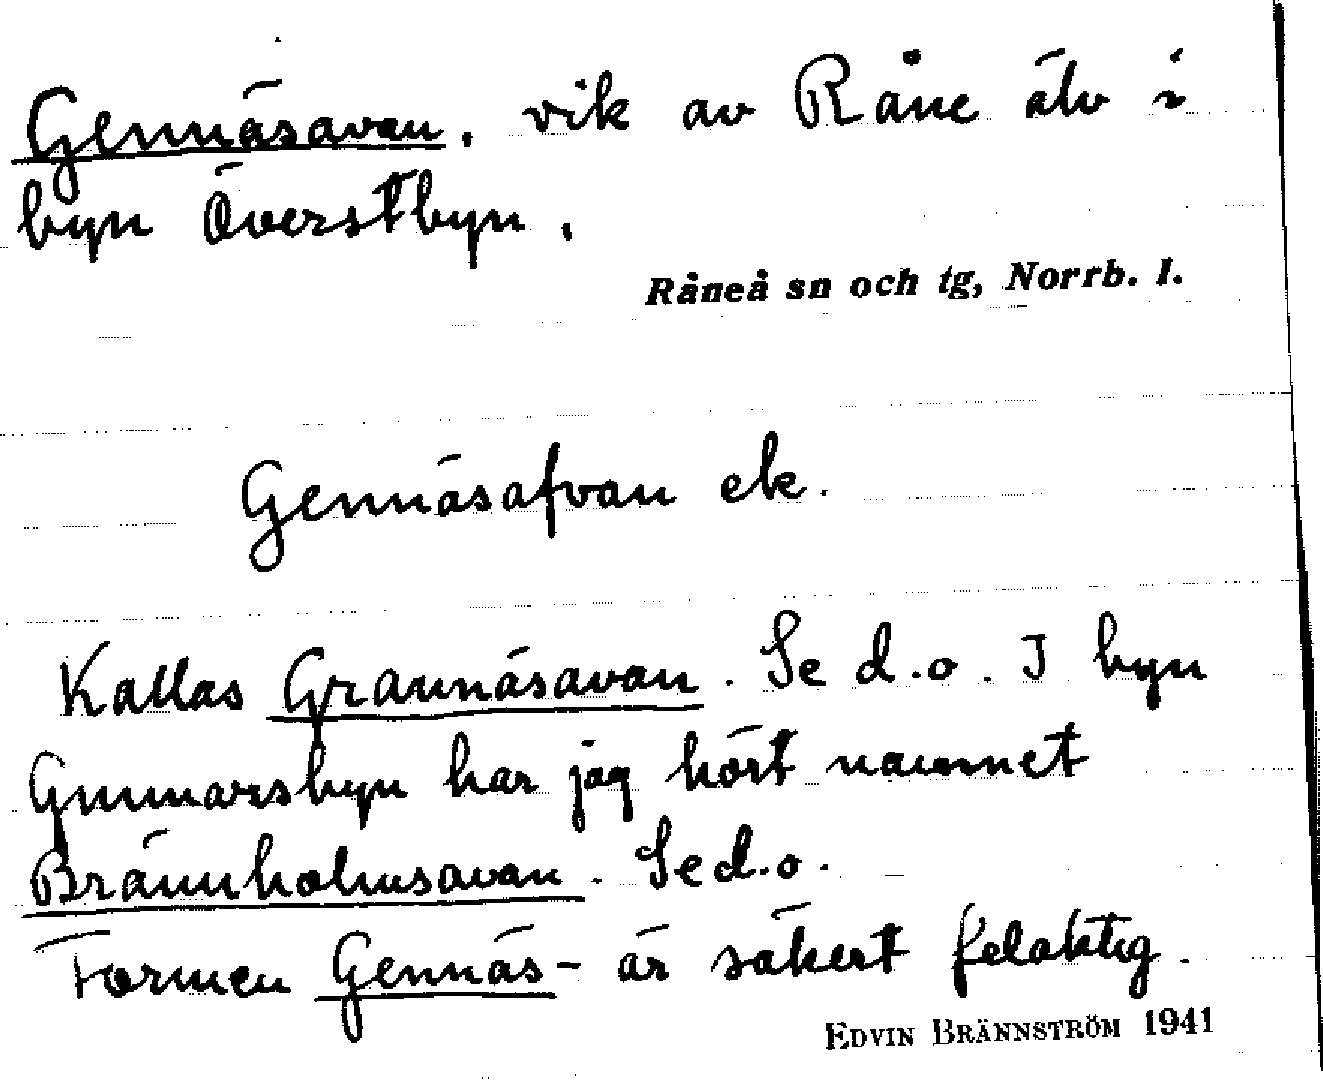 Gennäsavan, vik av Råne älv i
byn Överstbyn,
Råneå sn och tg, Norrb. l.
Gennäsafvan ek.
Kallas Grannäsavan. Se d.o. I byn
Gunnarsbyn har jag hört namnet
Brännholmsavan. Se d.o.
Formen Gennäs- är säkert felaktig.
EDVIN BRÄNNSTRÖM 1941